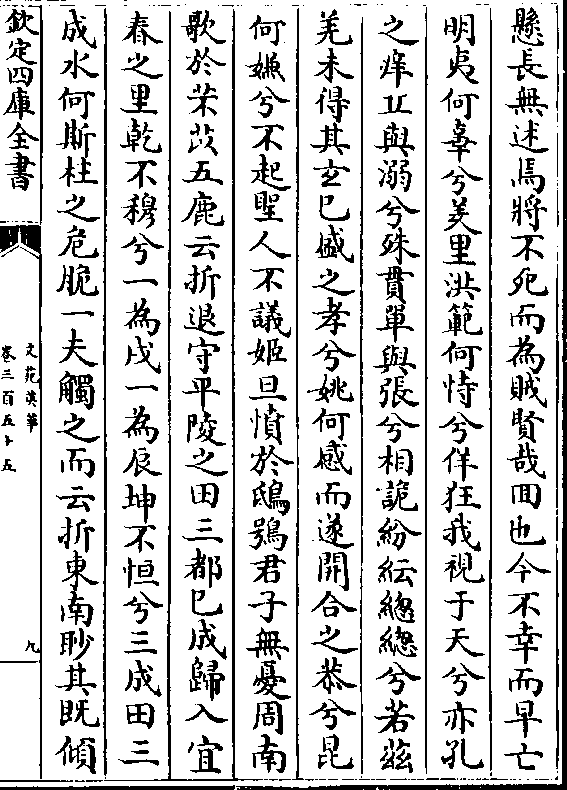 懸長無述焉將不死而為賊賢哉回也今不幸而早亡
明夷何辜兮羑里洪範何恃兮佯狂我視于天兮亦孔
之痒丘與溺兮殊貫單與張兮相詭紛紜緫緫兮若兹
羌未得其玄巳盛之孝兮姚何感而遂開合之恭兮昆
何嫌兮不起聖人不議姬旦憤於鴟鴞君子無憂周南
歌於芣苢五鹿云折退守平陵之田三都已成歸入宜
春之里乾不穆兮一為戌一為辰坤不恒兮三成田三
成水何斯柱之危脆一夫觸之而云折東南眇其既傾
欽定四庫全書
文苑英華
卷三百五十五
九